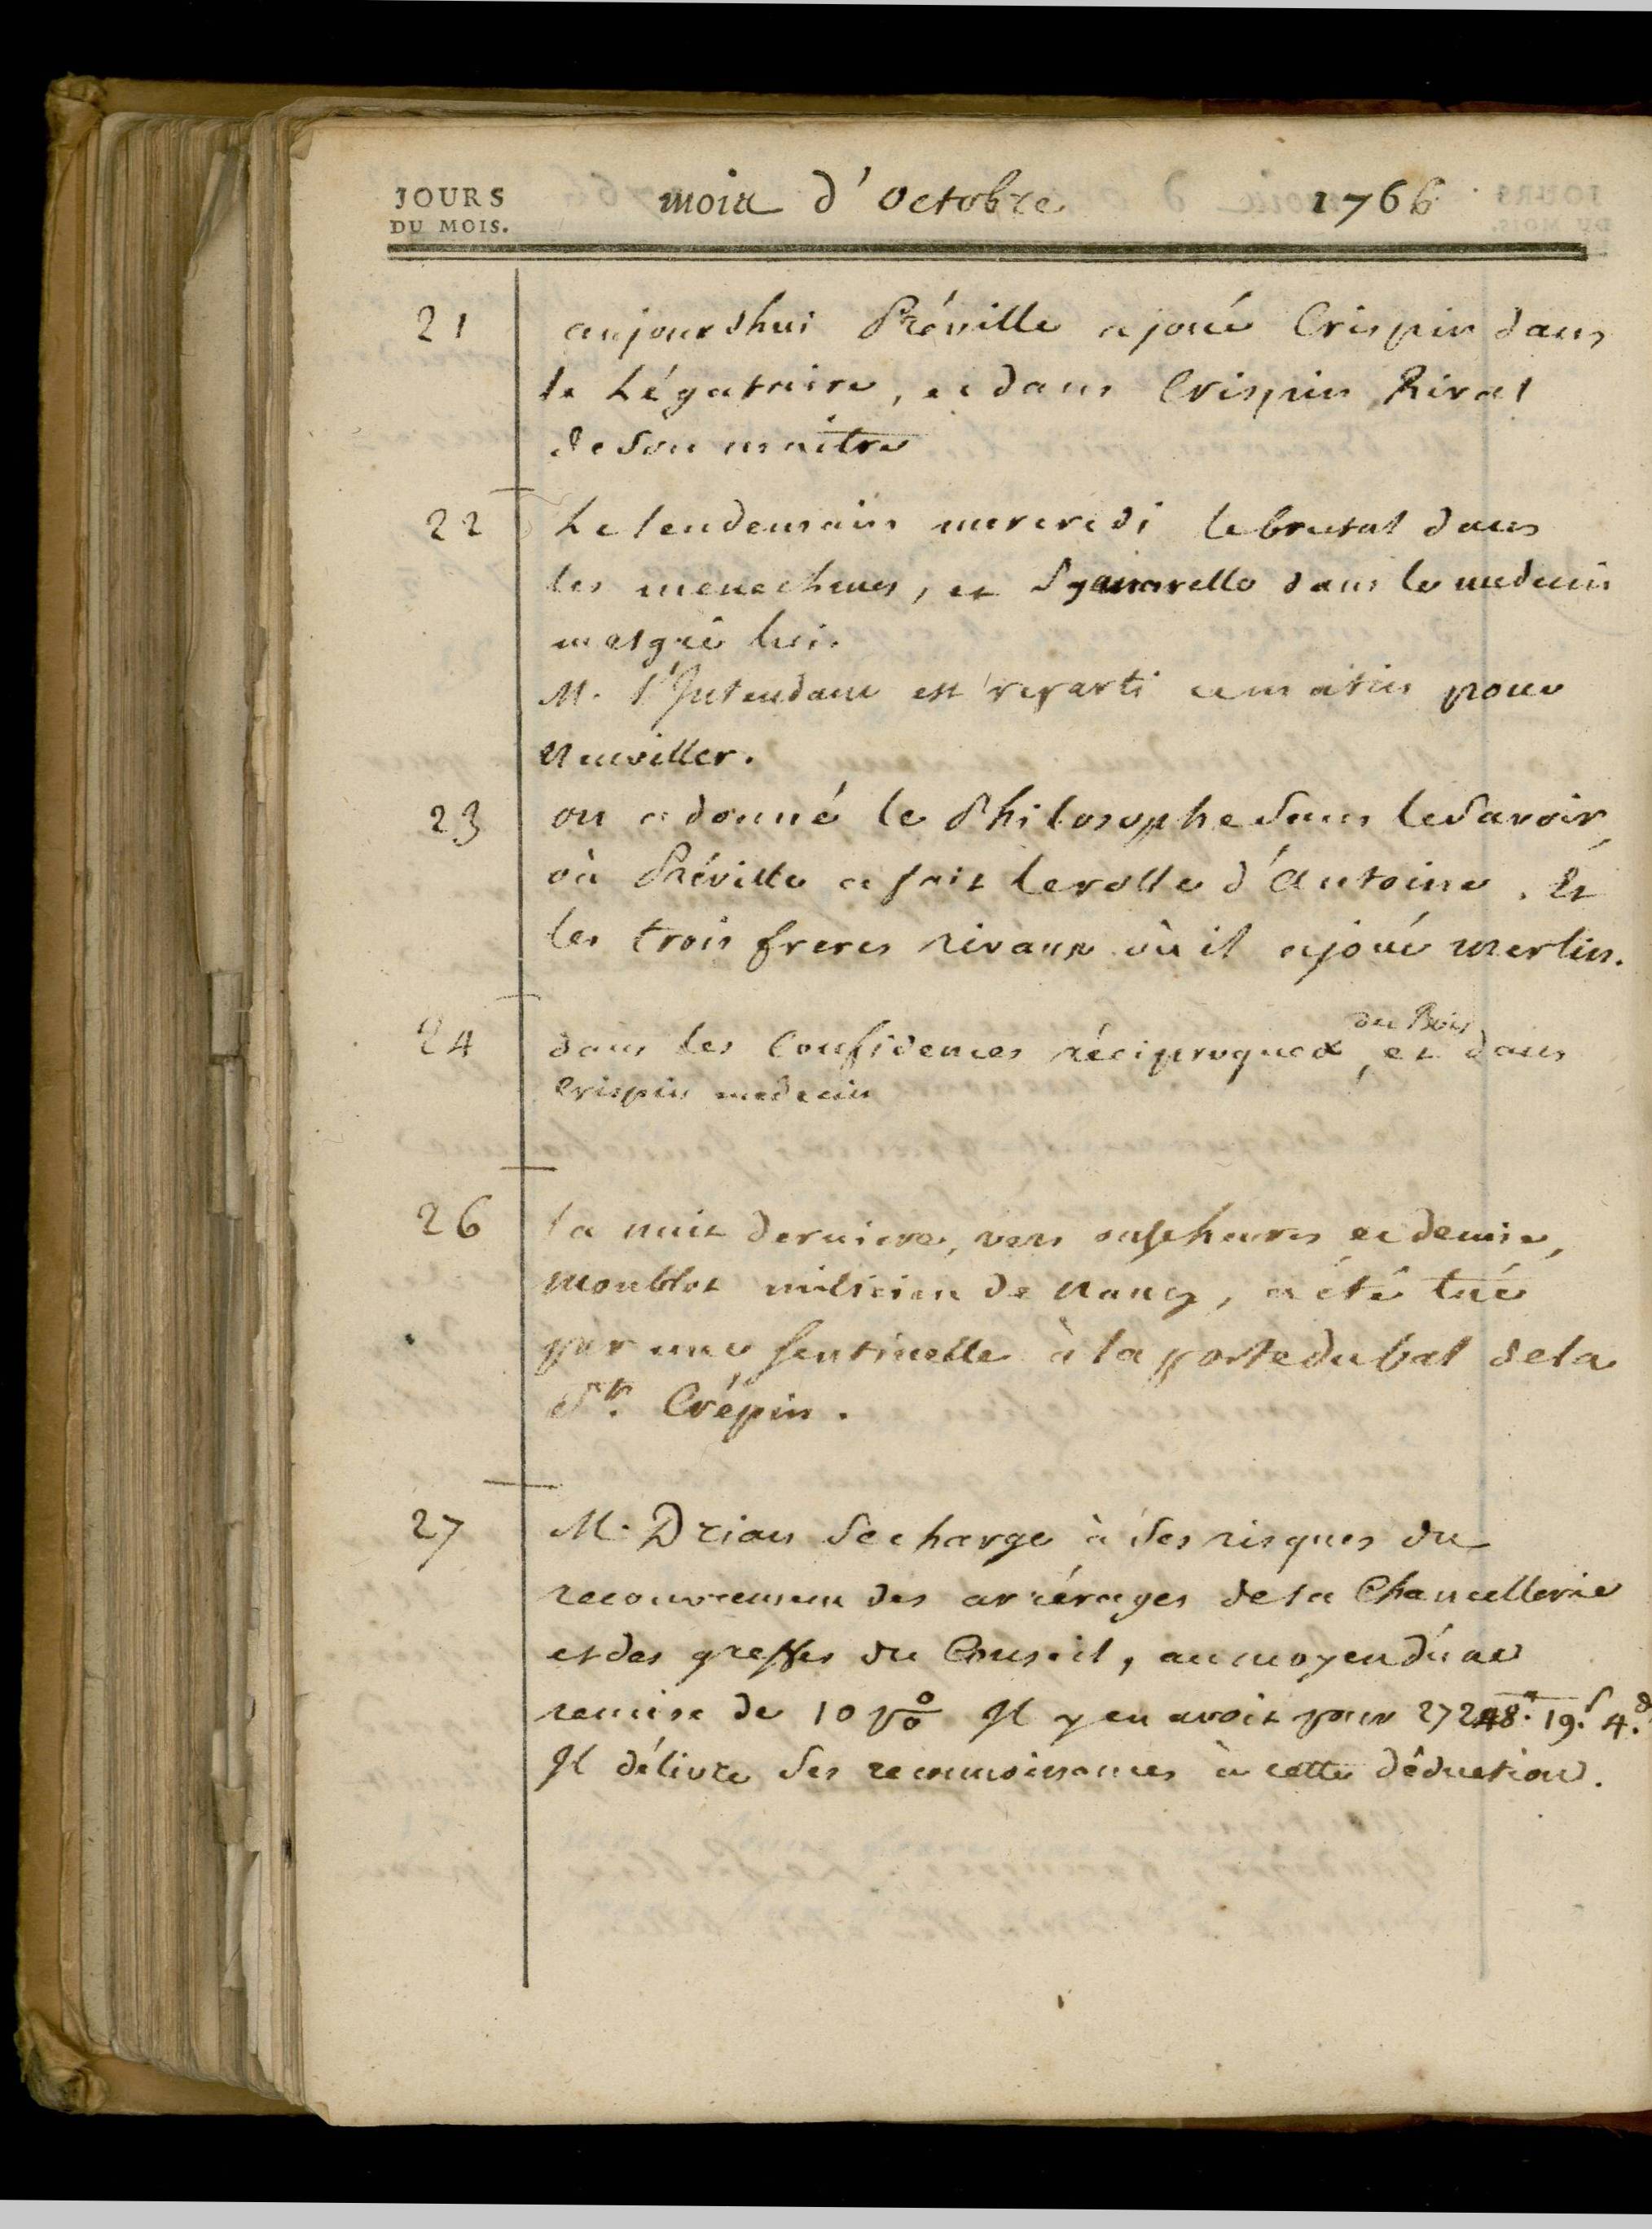 JOURS
DU MOIS.
mois d'octobre 1766
21 aujourdhui Préville a joué Crispin dans
le Légataire, et dans Crispin Rival
de Son maitre
22 Le lendemain mercredi le brutal dans
les menechmes, et Sganarelle dans le medecin
malgré lui.
M. l'Intendant est reparti ce matin pour
Neuviller.
23 on a donné le Philosophe Sans le Savoir,
où Préville a fait le rolle d'Antoine. Et
les trois freres rivaux où il a joué merlin.
24 dans les Confidences réciproques, du Bois et dans
Crispin medecin
26 la nuit derniere, vers onze heures et demie,
Moublot milicien de Nancy, a été tué
par une Sentinelle à la porte du bal de la
St. Crépin.
27 M. Drian Se charge à Ses risques du
recouvrement des arrérages de la Chancellerie
et des greffes du Conseil, au moyen d'une
remise de 10 p% Il y en avoit pour 27248. 19.s 4.d
Il délivre Ses reconnoissances à cette déduction.